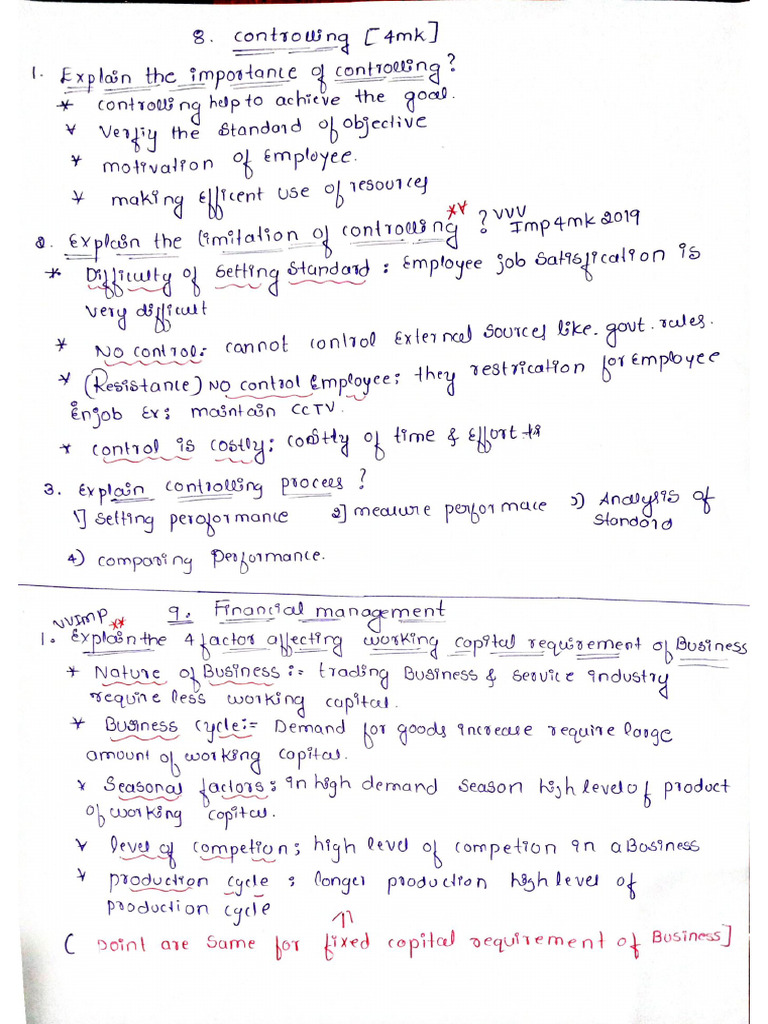 8. controlling [4mk]
1. Explain the importance of controlling?
* controlling help to achieve the goal.
* Verfiy the Standard of objective
* motivation of Employee.
* making Efficent use of resources
2. Explain the limitation of controlling ** ? VVV Imp 4mk 2019
* Difficulty of Setting Standard : Employee job Satisfication is
very difficult
* No control: cannot control External Sources like. govt. rules.
* (Resistance) No control Employee; they restrication for Employee
Enjob Ex; maintain CCTV.
* control is costly; costly of time & Effort
3. Explain controlling process?
1] Setting peroformance 2] measure performace 3) Analysis of
Standard
4) comparing performance.
9. Financial management
VVIMP **
1. Explain the 4 factor affecting working capital requirement of Business
* Nature of Business := trading Business & service industry
require less working capital.
* Business cycle:= Demand for goods increase require large
amount of working capital.
* Seasonal factors; in high demand season high level of product
of working capital.
* level of competion; high level of competion in a Business
* production cycle ; longer production high level of
production cycle
( point are same for fixed capital requirement of Business]